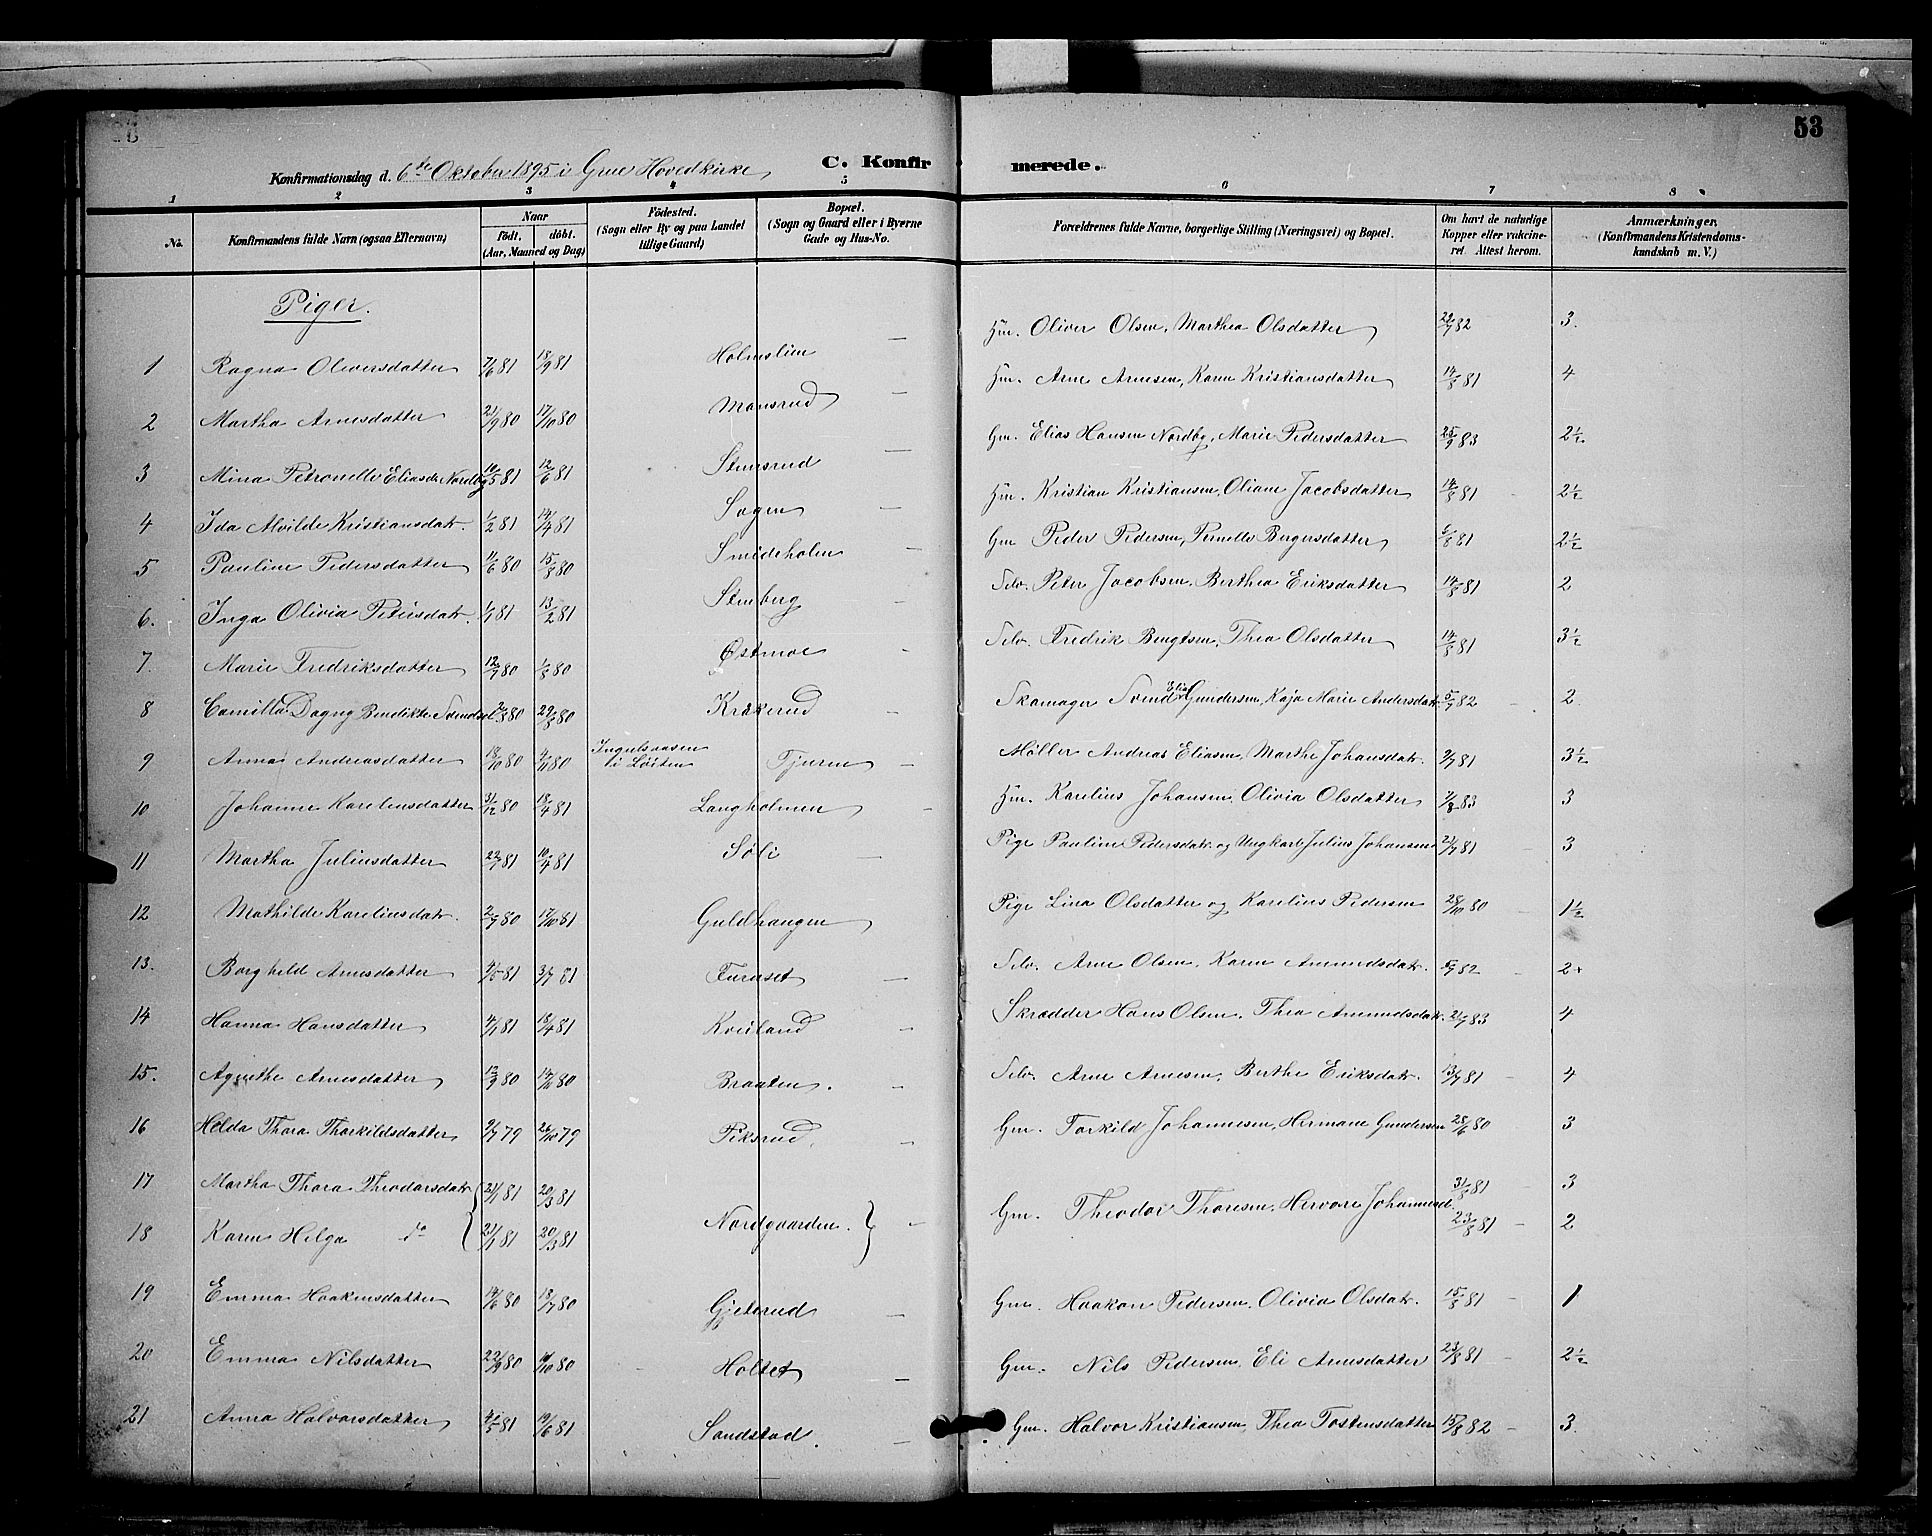 53
Konfirmationsdag d. 6te Oktober 1895 i Grue Hovedkirke
C. Konfir merede.
1 2 3 4 5 6 7 8
No. Konfirmandens fulde Navn (ogsaa Efternavn) Naar født. døbt. (Aar, Maaned og Dag) Fødested. (Sogn eller By og paa Landet tillige Gaard) Bopæl. (Sogn og Gaard eller i Byerne Gade og Hus-No. Forældrenes fulde Navne, borgerlige Stilling (Næringsvei) og Bopæl. Om havt de naturlige Kopper eller vakcineret. Attest herom. Anmærkninger. (Konfirmandens Kristendomskundskab m. V.)
Piger.
1 Ragna Oliversdatter 7/6 81 18/9 81 Holmslien — Hm. Oliver Olsen, Marthea Olsdatter 22/7 82 3.
2 Martha Arnesdatter 21/9 80 17/10 80 Monsrud — Hm. Arne Arnesen, Karen Kristiansdatter 14/8 81 4
3 Mina Petronelle Eliasdr Nordby 10/5 81 12/6 81 Stensrud — Gm. Elias Hansen Nordby, Marie Pedersdatter 25/9 83 2½
4 Ida Alvilde Kristiansdatr. 1/2 81 14/4 81 Sogen — Hm. Kristian Kristiansen, Oliane Jacobsdatter 14/8 81 2½
5 Pauline Pedersdatter 11/6 80 15/8 80 Smideholen — Gm Peder Pedersen, Pernelle Bergersdatter 6/8 81 2½
6. Inga Olivia Petersdatr. 1/1 81 13/2 81 Stenberg — Selv. Peter Jacobsen, Berthea Eriksdatter 14/8 81 2
7 Marie Fredriksdatter 12/7 80 1/8 80 Østmoe - Selv. Fredrik Bengtsen, Thea Olsdatter 14/8 81 3½
8 Camilla Dagny Bendikte Svendsd. 2/8 80 29/8 80 Krakerud — Skomager Svend Elias Gundersen, Kaja Marie Andersdatr. 5/7 82 2
9 Anna Andreasdatter 18/10 80 4/11 80 Ingulsvasen i Löiten Tjuren — Møller Andreas Eliasen, Marthe Johansdatr. 2/7 81 3½
10 Johanne Kareliusdatter 31/12 80 18/4 81 Langholmen — Hm. Karelius Johansen, Olivia Olsdatter 7/8 83 3
11 Martha Juliusdatter 22/1 81 10/4 81 Søli — Pige Pauline Pedersdatr. og Ungkarl Julius Johansen 21/7 81 3
12 Mathilde Kareliusdatr. 2/7 80 17/10 81 Guldhaugen Pige Lina Olsdatter og Karelius Pedersen 28/10 80 1½
13. Borghild Arnesdatter 4/5 81 3/7 81 Furuset — Selv. Arne Olsen, Karen Amundsdatr. 6/7 82 2+
14 Hanna Hansdatter 4/1 81 18/4 81 Kveiland — Skrædder Hans Olsen, Thea Amundsdatr. 21/7 83 4
15. Agnethe Arnesdatter 12/9 80 14/11 80 Braaten. — Selv. Arne Arnesen, Berthe Eriksdatr. 13/7 81 4
16 Helda Thora Thorkildsdatter 9/7 79 26/10 79 Piksrud. — Gm. Torkild Johannesen, Hermane Gundersen 28/6 80 3
17 Martha Thora Theodorsdatr. 21/1 81 20/3 81 31/8 81 3
18 Karen Helga do 21/1 81 20/3 81 Nordgaarden. — Gm. Theodor Thoresen, Hervore Johannesd. 23/8 81 2
19 Emma Haakensdatter 14/6 80 18/7 80 Gjeterud — Gm. Haakon Pedersen, Olivia Olsdatr. 15/8 81 1
20 Emma Nilsdatter 22/9 80 10/10 80 Holtet — Gm. Nils Pedersen, Eli Arnesdatter 23/8 81 2½
21 Anna Halvorsdatter 4/5 81 19/6 81 Sandstad. — Gm. Halvor Kristiansen, Thea Tostensdatter 15/8 82 3.